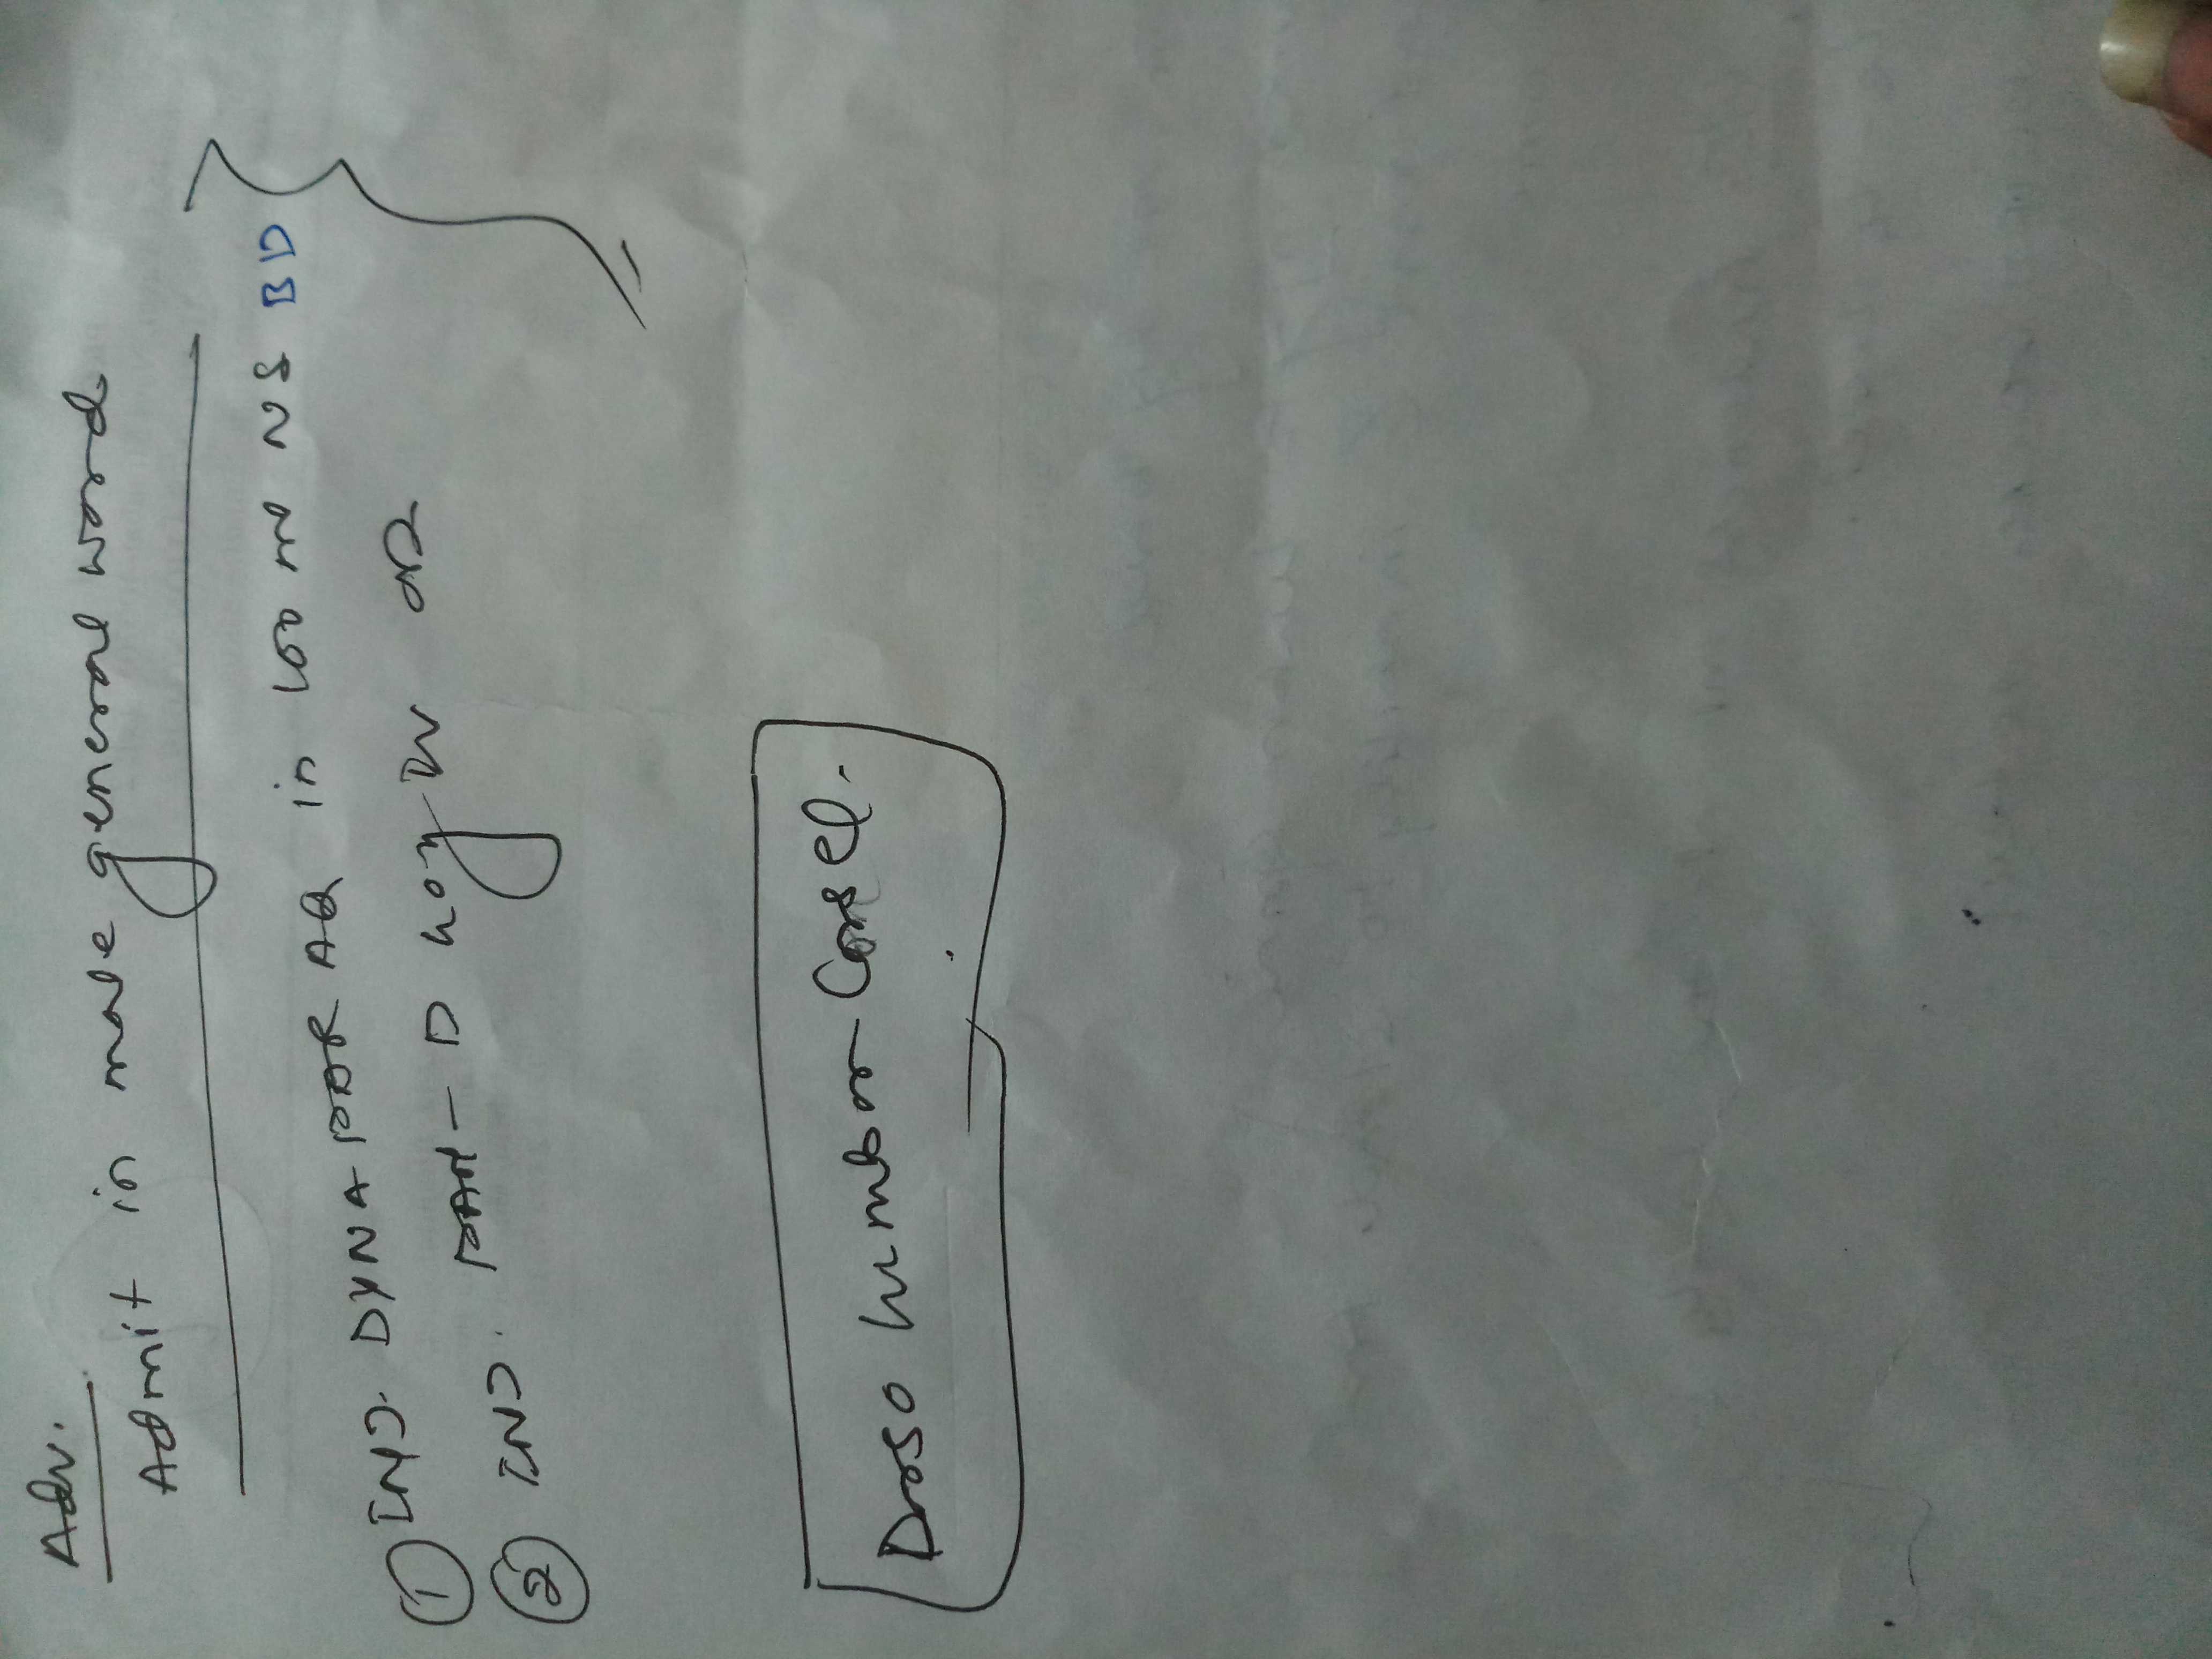 Adv.
Admit in male general ward
① INJ. DYNAPAR AQ in 100 ml NS BD
② INJ. PAN-D 40mg IV OD
Dorso lumbar Corset.